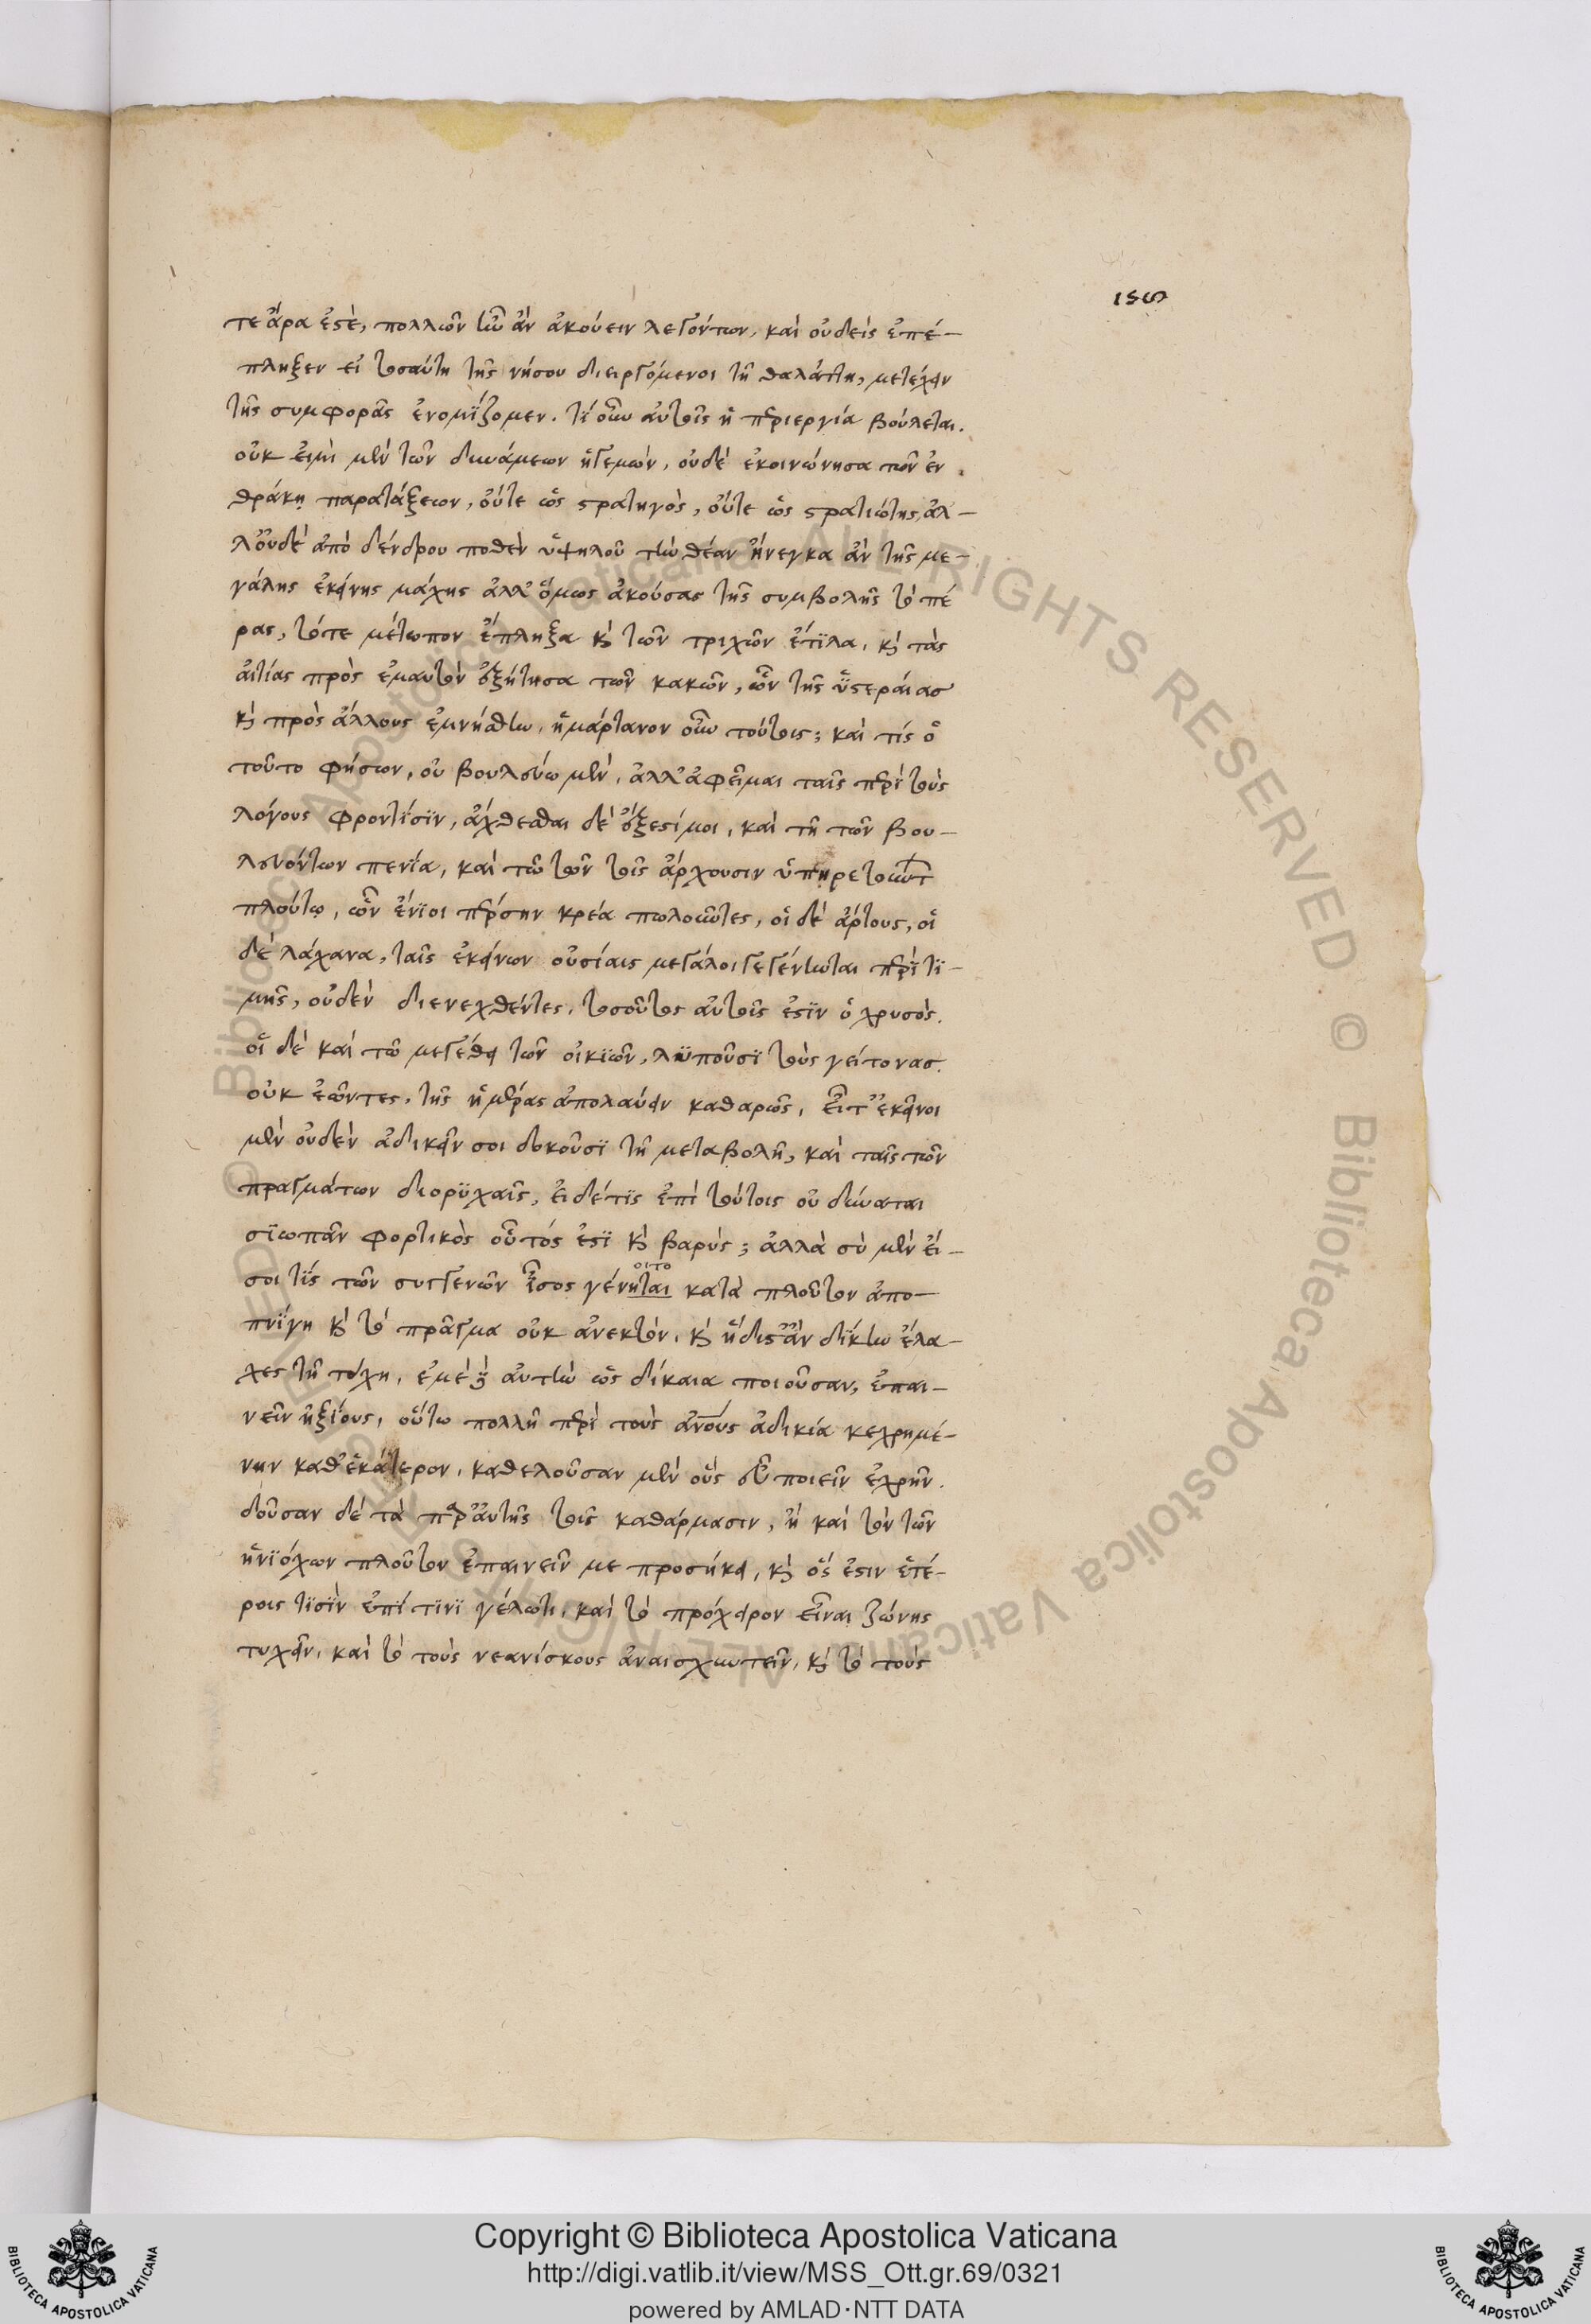 156
τε ἄρα ἐστὲ, πολλῶν ἦν ἂν ἀκούειν λεγόντων, καὶ οὐδεὶς ἐπέ-
πληξεν εἰ τοσαύτη τῆς νήσου διειργόμενοι τῆ θαλάττη, μετέχειν
τῆς συμφορᾶς ἐνομίζομεν. τί οὖν αὐτοῖς ἡ περιεργία βούλεται.
οὐκ εἰμὶ μὲν τῶν δυνάμεων ἡγεμὼν, οὐδὲ ἐκοινώνησα τῶν ἐν
θράκη παρατάξεων, οὔτε ὡς στρατηγὸς, οὔτε ὡς στρατιώτης, ἀλ-
λ' οὐδὲ ἀπὸ δένδρου ποθὲν ὑψηλοῦ τὴν θέαν ἤνεγκα ἂν τῆς με-
γάλης ἐκείνης μάχης ἀλλ' ὅμως ἀκούσας τῆς συμβολῆς τὸ πέ
ρας, τότε μέτωπον ἔπληξα καὶ τῶν τριχῶν ἔτιλα, καὶ τὰς
αἰτίας πρὸς ἐμαυτὸν ἐξήτησα τῶν κακῶν, ὧν τῆς ὑστεραίας
καὶ πρὸς ἄλλους ἐμνήσθην, ἡμάρτανον οὖν τούτοις; καὶ τίς ὁ
τοῦτο φήσων, οὐ βουλεύω μὲν, ἀλλ' ἀφεῖμαι ταῖς περὶ τοὺς
λόγους φροντίσιν, ἄχθεσθαι δὲ ἔξεστί μοι, καὶ τῆ τῶν βου-
λευόντων πενία, καὶ τῶ τῶν τοῖς ἄρχουσιν ὑπηρετούντ
πλούτω, ὧν ἔνιοι πρώην κρέα πωλοῦντες, οἱ δὲ ἄρτους, οἱ
δὲ λάχανα, ταῖς ἐκείνων οὐσίαις μεγάλοι γεγένηνται περὶ τι-
μῆς, οὐδὲν διενεχθέντες, τοσοῦτος αὐτοῖς ἐστιν ὁ χρυσὸς.
οἱ δὲ καὶ τῶ μεγέθει τῶν οἰκιῶν, λυποῦσι τοὺς γείτονας.
οὐκ ἐῶντες, τῆς ἡμέρας ἀπολαύειν καθαρῶς, εἶτ' ἐκεῖνοι
μὲν οὐδὲν ἀδικεῖν σοι δοκοῦσι τῆ μεταβολῆ, καὶ ταῖς τῶν
πραγμάτων διορυχαῖς, εἰ δέ τις ἐπὶ τούτοις οὐ δύναται
σιωπᾶν φορτικὸς οὗτός ἐστι καὶ βαρύς; ἀλλὰ σὺ μὲν εἴ-
οιτο
σοι τίς τῶν συγγενῶν ἶσος γένηται κατὰ πλοῦτον ἀπο-
πνίγη καὶ τὸ πρᾶγμα οὐκ ἀνεκτὸν, καὶ ἥδιστ' ἂν δίκην ἔλα-
χες τῆ τύχη, ἐμὲ δὲ αὐτὴν ὡς δίκαια ποιοῦσαν, ἐπαι-
νεῖν ἠξίους, οὕτω πολλῆ περὶ τοὺς ἀνους ἀδικία κεχρημέ-
νην καθ' ἑκάτερον, καθελοῦσαν μὲν οὓς εὖ ποιεῖν ἐχρῆν.
δοῦσαν δὲ τὰ παρ' αὐτῆς τοῖς καθάρμασιν, ἢ καὶ τὸν τῶν
ἡνιόχων πλοῦτον ἐπαινεῖν με προσήκει, καὶ ὅς ἐστιν ἑτέ-
ροις τισὶν ἐπί τινι γέλωτι, καὶ τὸ πρόχειρον εἶναι ζώνης
τυχεῖν, καὶ τὸ τοὺς νεανίσκους ἀναισχυντεῖν, καὶ τὸ τοὺς
Biblioteca Apostolica Vaticana ALL RIGHTS RESERVED © Biblioteca Apostolica Vaticana ALL RIGHTS RESERVED ©
Copyright © Biblioteca Apostolica Vaticana
http://digi.vatlib.it/view/MSS_Ott.gr.69/0321
powered by AMLAD·NTT DATA
BIBLIOTECA APOSTOLICA VATICANA
BIBLIOTECA APOSTOLICA VATICANA